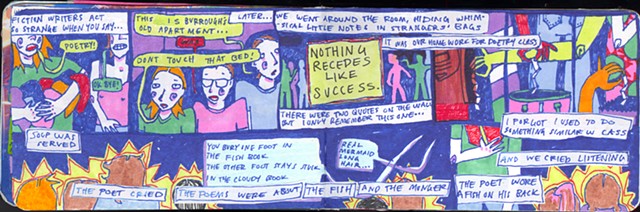 FICTION WRITERS ACT
SO STRANGE WHEN YOU SAY...
POETRY!
OK BYE!
SOUP WAS
SERVED
THIS IS BURROUGHS'
OLD APARTMENT...
DON'T TOUCH THAT BED!
LATER... WE WENT AROUND THE ROOM, HIDING WHIM-
SICAL LITTLE NOTES IN STRANGERS' BAGS
NOTHING
RECEDES
LIKE
SUCCESS.
THERE WERE TWO QUOTES ON THE WALL
BUT I ONLY REMEMBER THIS ONE...
IT WAS OUR HOMEWORK FOR POETRY CLASS
I FORGOT I USED TO DO
SOMETHING SIMILAR W CASS
THE POET CRIED
YOU BURY ONE FOOT IN
THE FISH BOOK
THE OTHER FOOT STAYS STUCK
IN THE CLOUDY BOOK
REAL
MERMAID
LONG
HAIR...
THE POEMS WERE ABOUT
THE FISH
AND THE MONGER
AND WE CRIED LISTENING
THE POET WORE
A FISH ON HIS BACK